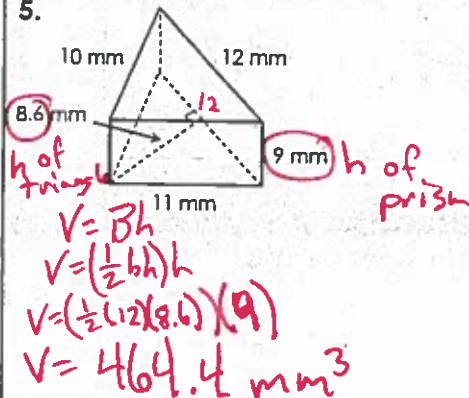 5.
10 mm
12 mm
8.6 mm
12
9 mm
h of prism
h of triangle
11 mm
V = Bh
V = (1/2 bh)h
V = (1/2 (12)(8.6))(9)
V = 464.4 mm³